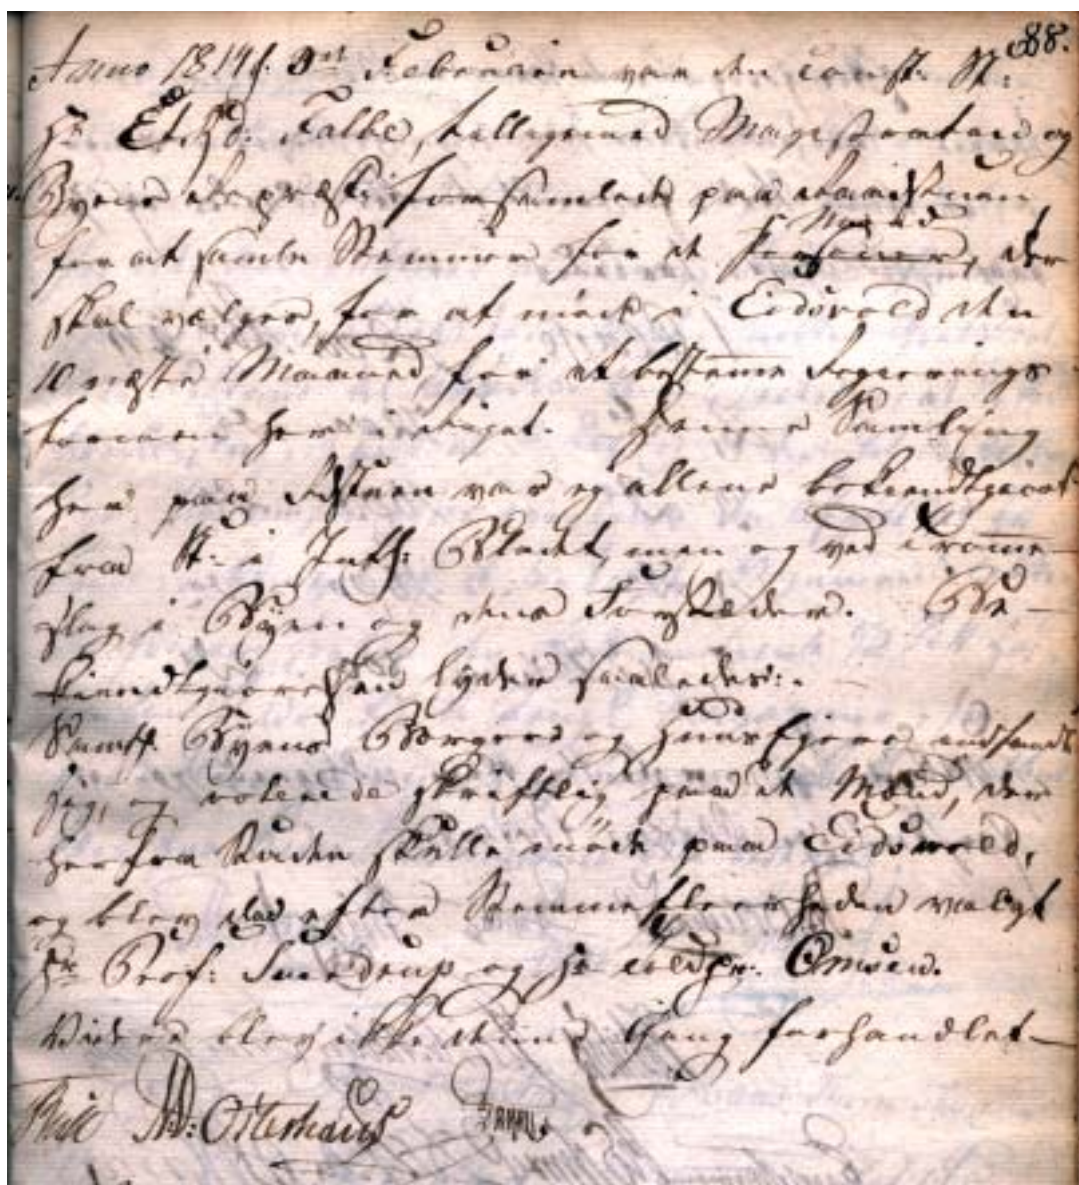 88.
Anno 1814 d. Februarii var den const. St:
Hr Et.Rd: Falbe, tilligemed Magistraten og
Byens forsamlede paa Raadstuen
for at samle Stemmer for et Mænd Personer, der
skal vælges, for at møde i Eidsvold den
10 næste Maaned for at bestemme Regierings
formen her i Riget. Denne Samling
her paa Rstuen var ej allene bekiendtgiort
fra St: i Inth: Bladet, men og ved Tromme-
slag i Byen og dens Forstæder. Be-
kiendtgiørelsen lyder saaledes:.
Samtl. Byens Borgere og Huuseyere indfandt
sig, og voterede skriftlig paa et Mænd, der
herfra Staden skulle møde paa Eidsvold,
og blev da efter Stemmefleerheden valgt
Hr Prof: Sverdrup og Hr Omsen.
Videre blev ikke denne Gang forhandlet-
M: Osterhaus